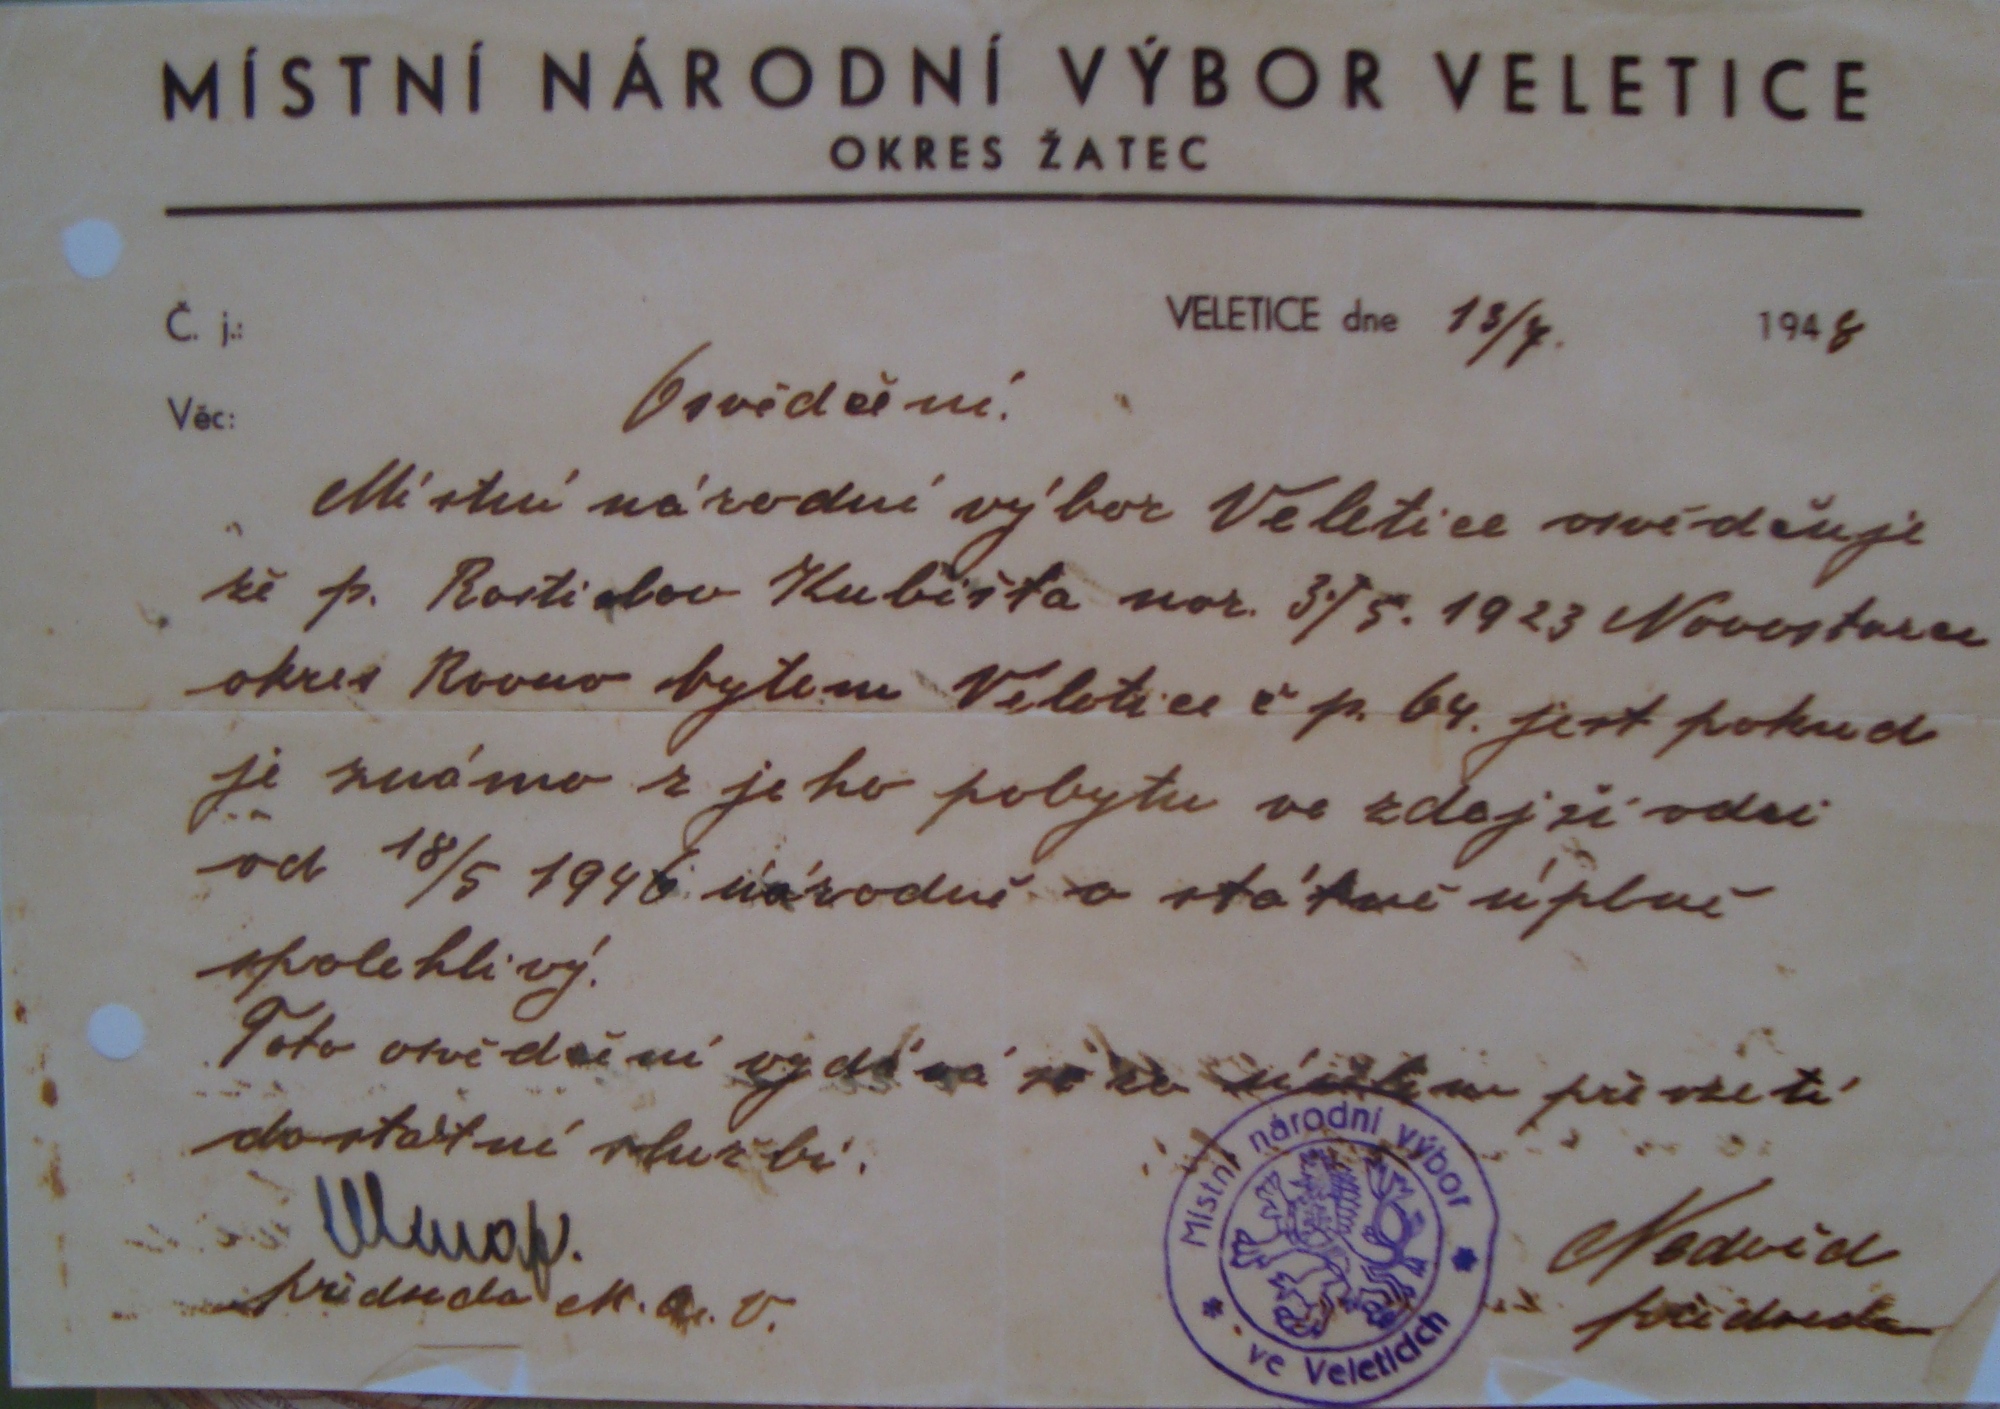 MÍSTNÍ NÁRODNÍ VÝBOR VELETICE
OKRES ŽATEC
Č. j.:
VELETICE dne 13/7. 1948
Věc:
Osvědčení.
Místní národní výbor Veletice osvědčuje
že p. Rostislav Kubišta nar. 3./5. 1923 Novostavce
okres Rovno bytem Veletice č p. 64. jest pokud
je známo z jeho pobytu ve zdejší vdsi
od 18/5 1946 národně a státně úplně
spolehlivý.
Toto osvědčení vydává se za účelem převzetí
do státní službi.
předseda M. V.
Nedvěd
předseda
Místní národní výbor
ve Veleticích